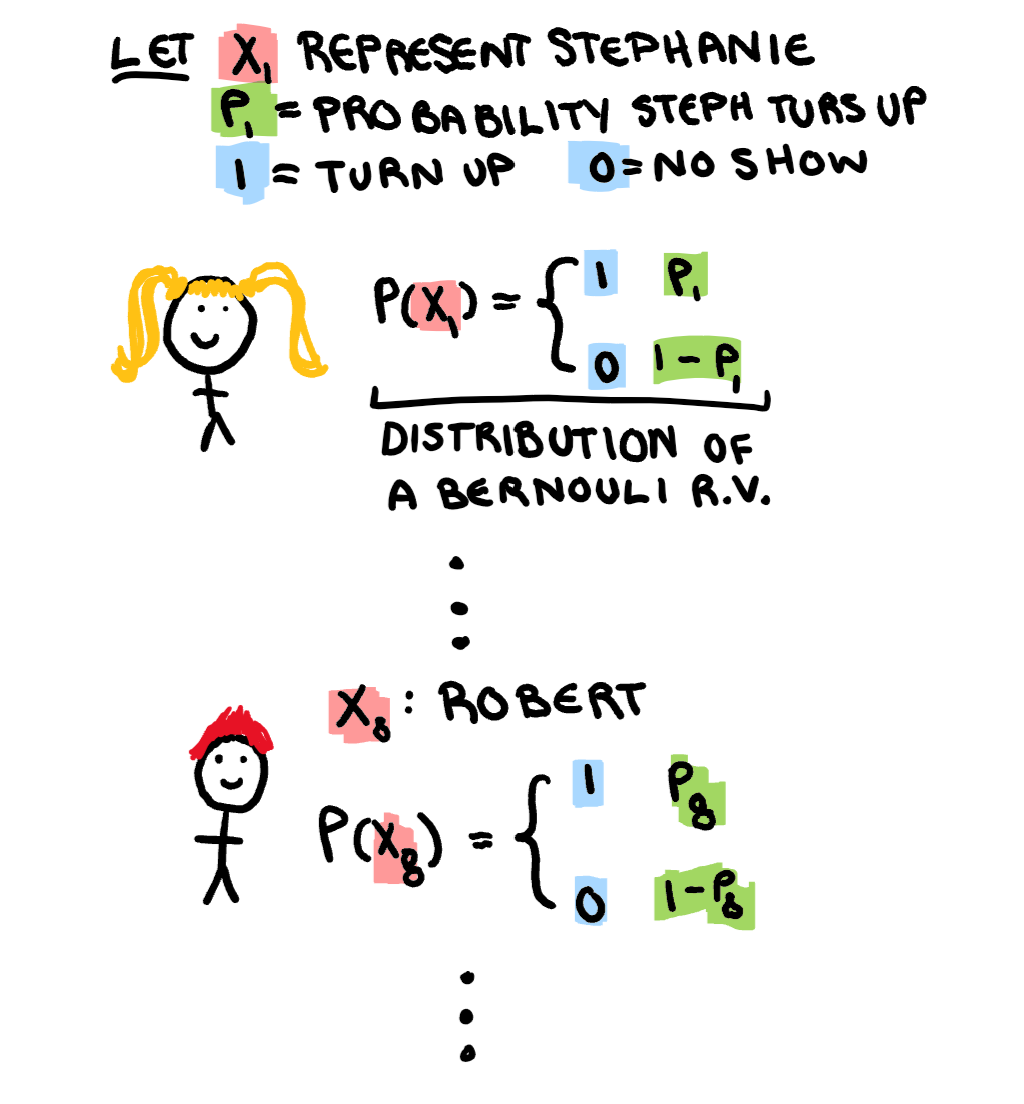 LET X₁ REPRESENT STEPHANIE
P₁ = PROBABILITY STEPH TURS UP
1 = TURN UP 0 = NO SHOW
P(X₁) = { 1 P₁
0 1 - P₁
DISTRIBUTION OF
A BERNOULI R.V.
X₈ : ROBERT
P(X₈) = { 1 P₈
0 1 - P₈